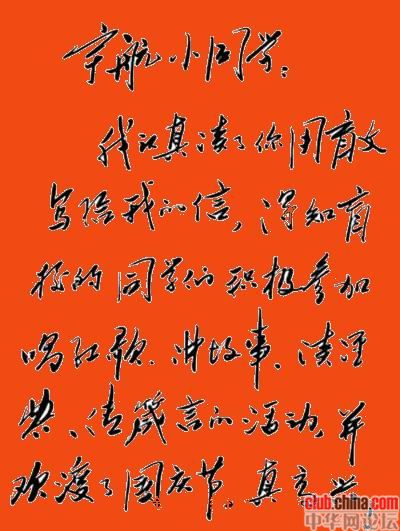 宇航小同学：
我认真读了你用盲文
写给我的信，得知盲
校的同学们积极参加
唱红歌、讲故事、读经
典、传箴言的活动，并
欢渡了国庆节。真高兴
club.china.com
中华网论坛